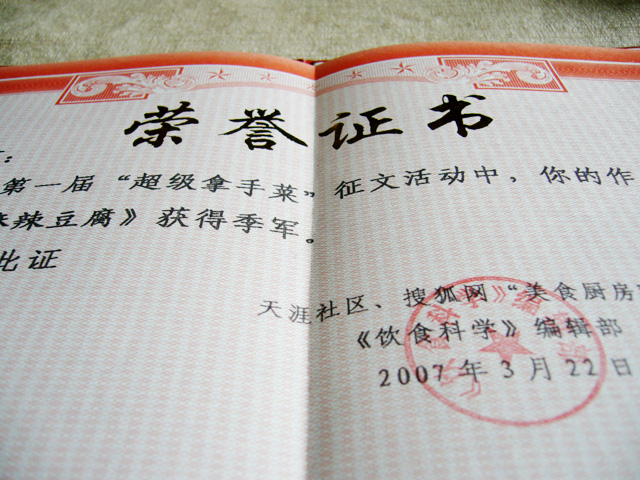 荣誉证书
：
第一届“超级拿手菜”征文活动中，你的作
辣豆腐》获得季军。
此证
天涯社区、搜狐网“美食厨房
《饮食科学》编辑部
2007年3月22日